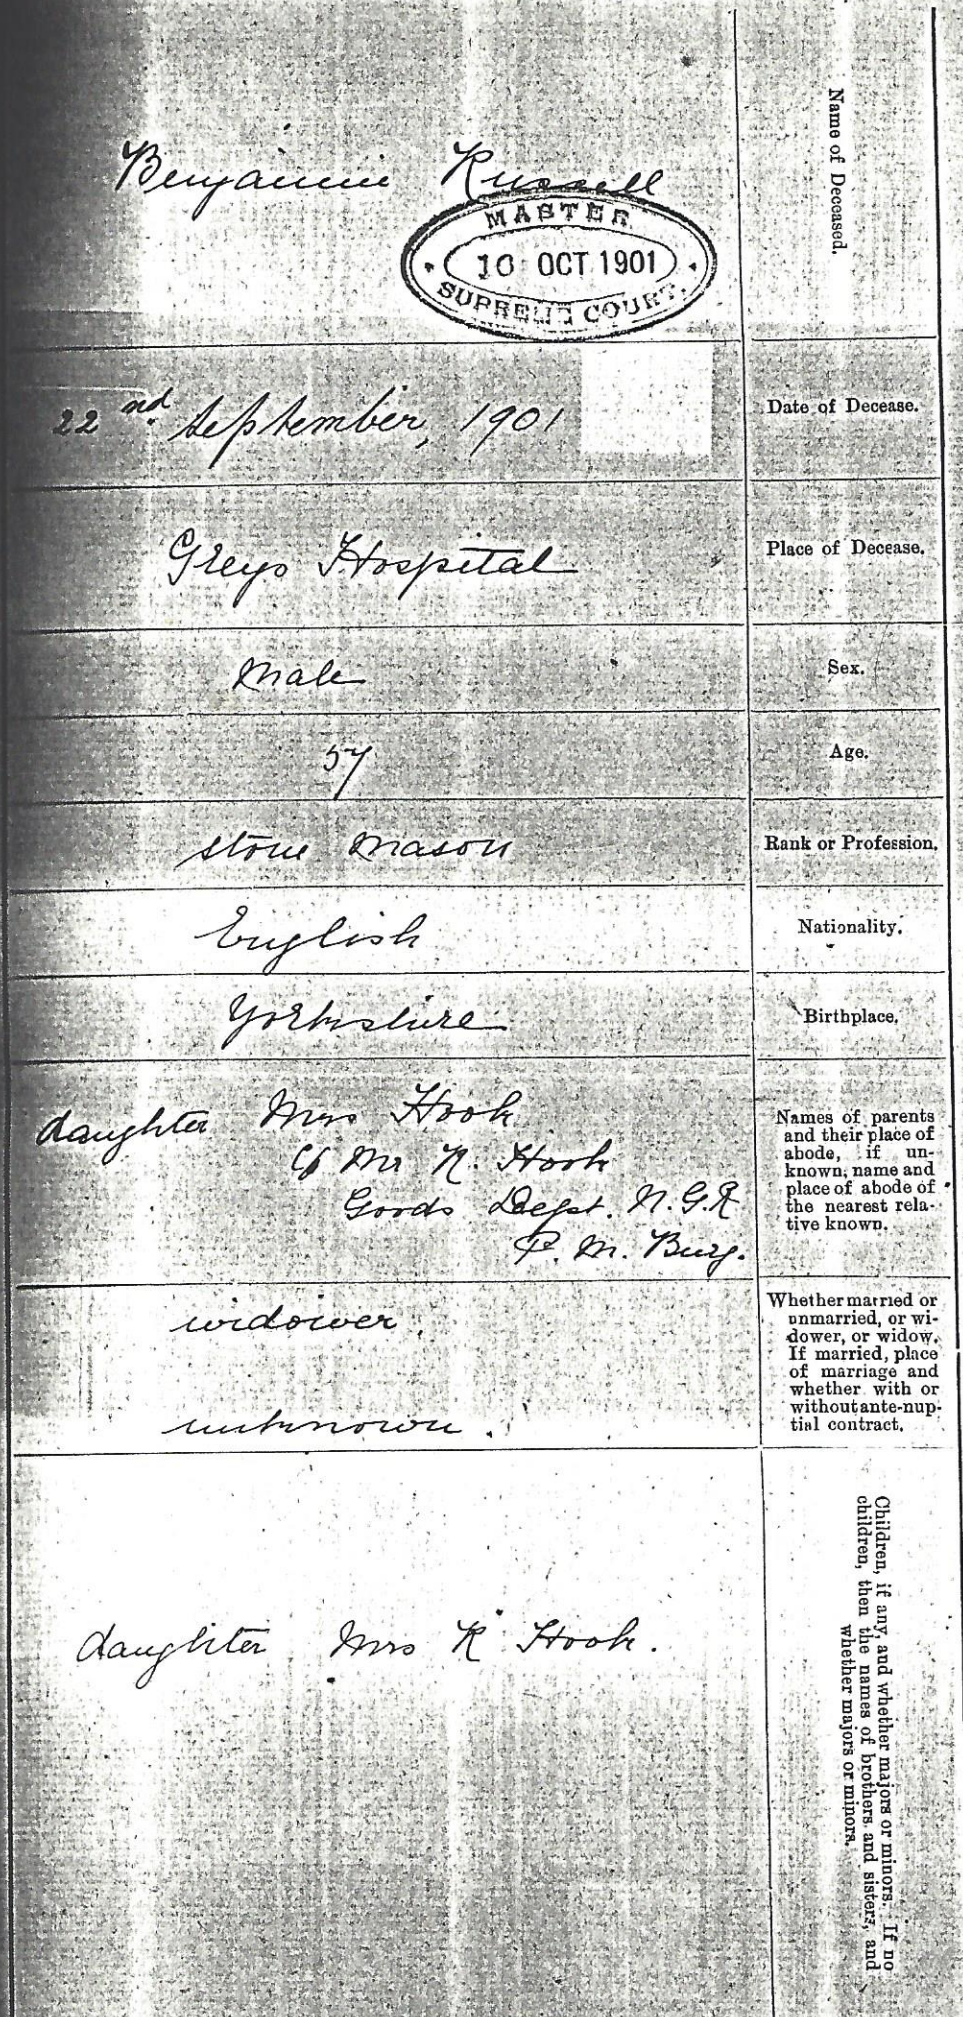 Name of Deceased.
Benjamin Russell
MASTER
10 OCT 1901
SUPREME COURT.
Date of Decease.
22nd September, 1901
Place of Decease.
Greys Hospital
Sex.
Male
Age.
57
Rank or Profession.
stone mason
Nationality.
English
Birthplace.
Yorkshire
Names of parents
and their place of
abode, if un-
known, name and
place of abode of
the nearest rela-
tive known.
daughter Mrs Hook
c/o Mr R. Hook
Goods Dept. N.G.R
P. M. Burg.
Whether married or
unmarried, or wi-
dower, or widow.
If married, place
of marriage and
whether with or
without ante-nup-
tial contract.
widower
unknown.
Children, if any, and whether majors or minors. If no
children, then the names of brothers and sisters, and
whether majors or minors.
daughter Mrs R Hook.